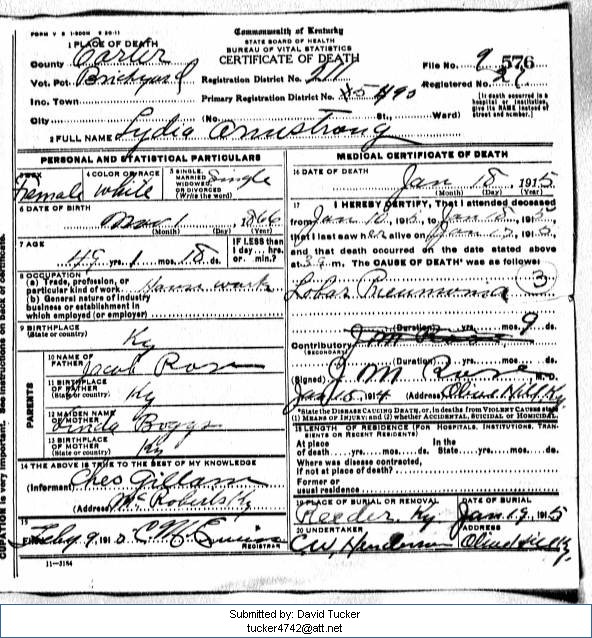 FORM V S 1-500M 9 20-11
Commonwealth of Kentucky
STATE BOARD OF HEALTH
BUREAU OF VITAL STATISTICS
CERTIFICATE OF DEATH
1 PLACE OF DEATH
County Carter
Vot. Pct. Brickyard
Inc. Town
City
Registration District No.
Primary Registration District No.
(No. St., Ward)
File No. 576
Registered No.
[If death occurred in a hospital or institution, give its NAME instead of street and number.]
2 FULL NAME Lydia Armstrong
PERSONAL AND STATISTICAL PARTICULARS
SEX Female
4 COLOR OR RACE White
5 SINGLE, MARRIED, WIDOWED, OR DIVORCED (Write the word) Single
6 DATE OF BIRTH
1866
(Month) (Day) (Year)
7 AGE
49 yrs. 1 mos. 18 ds.
IF LESS than 1 day, hrs. or min.?
8 OCCUPATION
(a) Trade, profession, or particular kind of work House work
(b) General nature of industry business or establishment in which employed (or employer)
9 BIRTHPLACE
(State or country) Ky
PARENTS
10 NAME OF FATHER Jacob Rose
11 BIRTHPLACE OF FATHER (State or country) Ky
12 MAIDEN NAME OF MOTHER Linda Boggs
13 BIRTHPLACE OF MOTHER (State or country) Ky
14 THE ABOVE IS TRUE TO THE BEST OF MY KNOWLEDGE
(Informant) Ches Gillam
(Address) McRoberts Ky
15
Filed Feby 9 191 C. M.
REGISTRAR
11-3184
MEDICAL CERTIFICATE OF DEATH
16 DATE OF DEATH
Jan 18, 1915
(Month) (Day) (Year)
17 I HEREBY CERTIFY, That I attended deceased
from Jan 10, 1915 to Jan 18, 1915,
that I last saw her alive on Jan 1915,
and that death occurred on the date stated above
at m. The CAUSE OF DEATH* was as follows:
Lobar Pneumonia 3
(Duration) yrs. mos. 9 ds.
Contributory J M Rose
(SECONDARY)
(Duration) yrs. mos. ds.
(Signed) J M Rose M. D.
Jan 18 1914 (Address) Olive Hill Ky.
*State the DISEASE CAUSING DEATH, or, in deaths from VIOLENT CAUSES state (1) MEANS OF INJURY; and (2) whether ACCIDENTAL, SUICIDAL or HOMICIDAL.
18 LENGTH OF RESIDENCE (FOR HOSPITALS, INSTITUTIONS, TRANSIENTS OR RECENT RESIDENTS)
At place of death yrs. mos. ds. In the State yrs. mos. ds.
Where was disease contracted, if not at place of death?
Former or usual residence
19 PLACE OF BURIAL OR REMOVAL Reeder Ky
DATE OF BURIAL Jan 19, 1915
20 UNDERTAKER C W Henderson
ADDRESS Olive Hill Ky.
CUPATION is very important. See instructions on back of certificate.
Submitted by: David Tucker
tucker4742@att.net